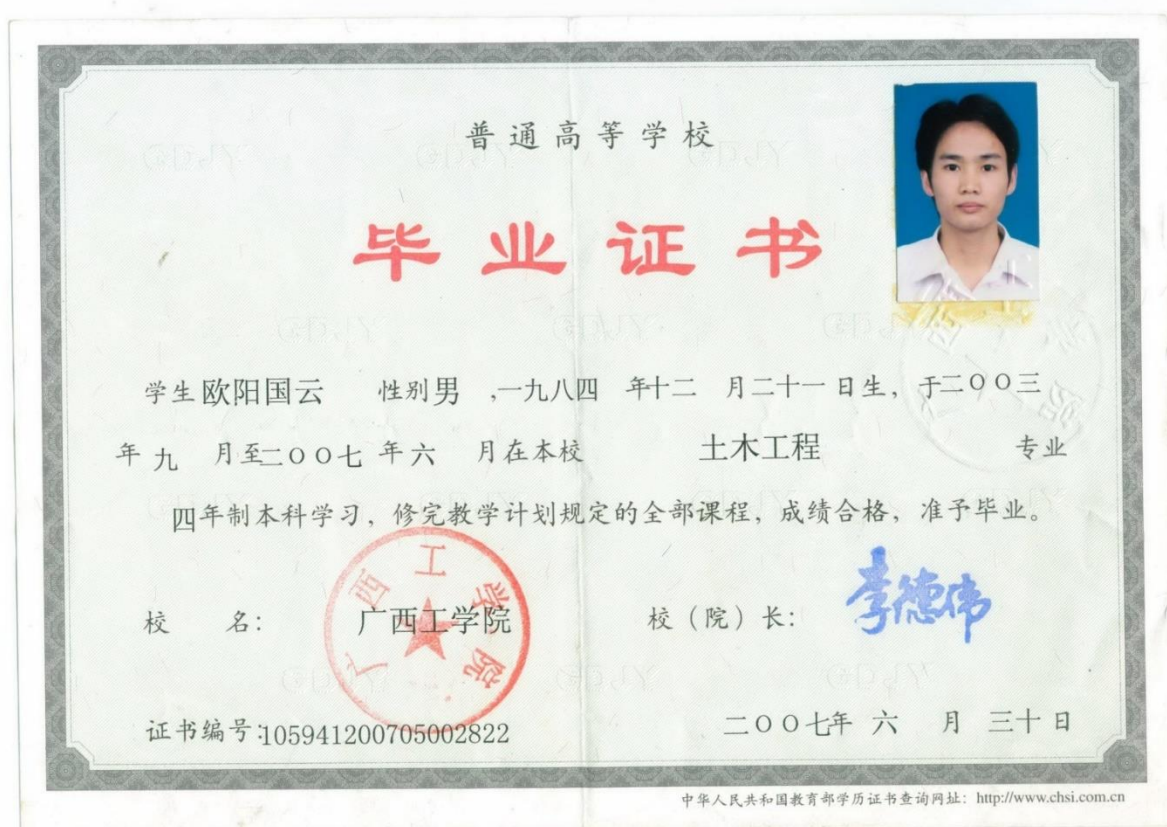 普通高等学校
毕业证书
学生 欧阳国云 性别 男 ,一九八四 年十二 月二十一 日生，于二〇〇三
年 九 月至二〇〇七 年 六 月在本校 土木工程 专业
四年制本科学习，修完教学计划规定的全部课程，成绩合格，准予毕业。
广西工学院
校 名：广西工学院 校（院）长：李德伟
证书编号:105941200705002822 二〇〇七年 六 月 三十 日
中华人民共和国教育部学历证书查询网址：http://www.chsi.com.cn